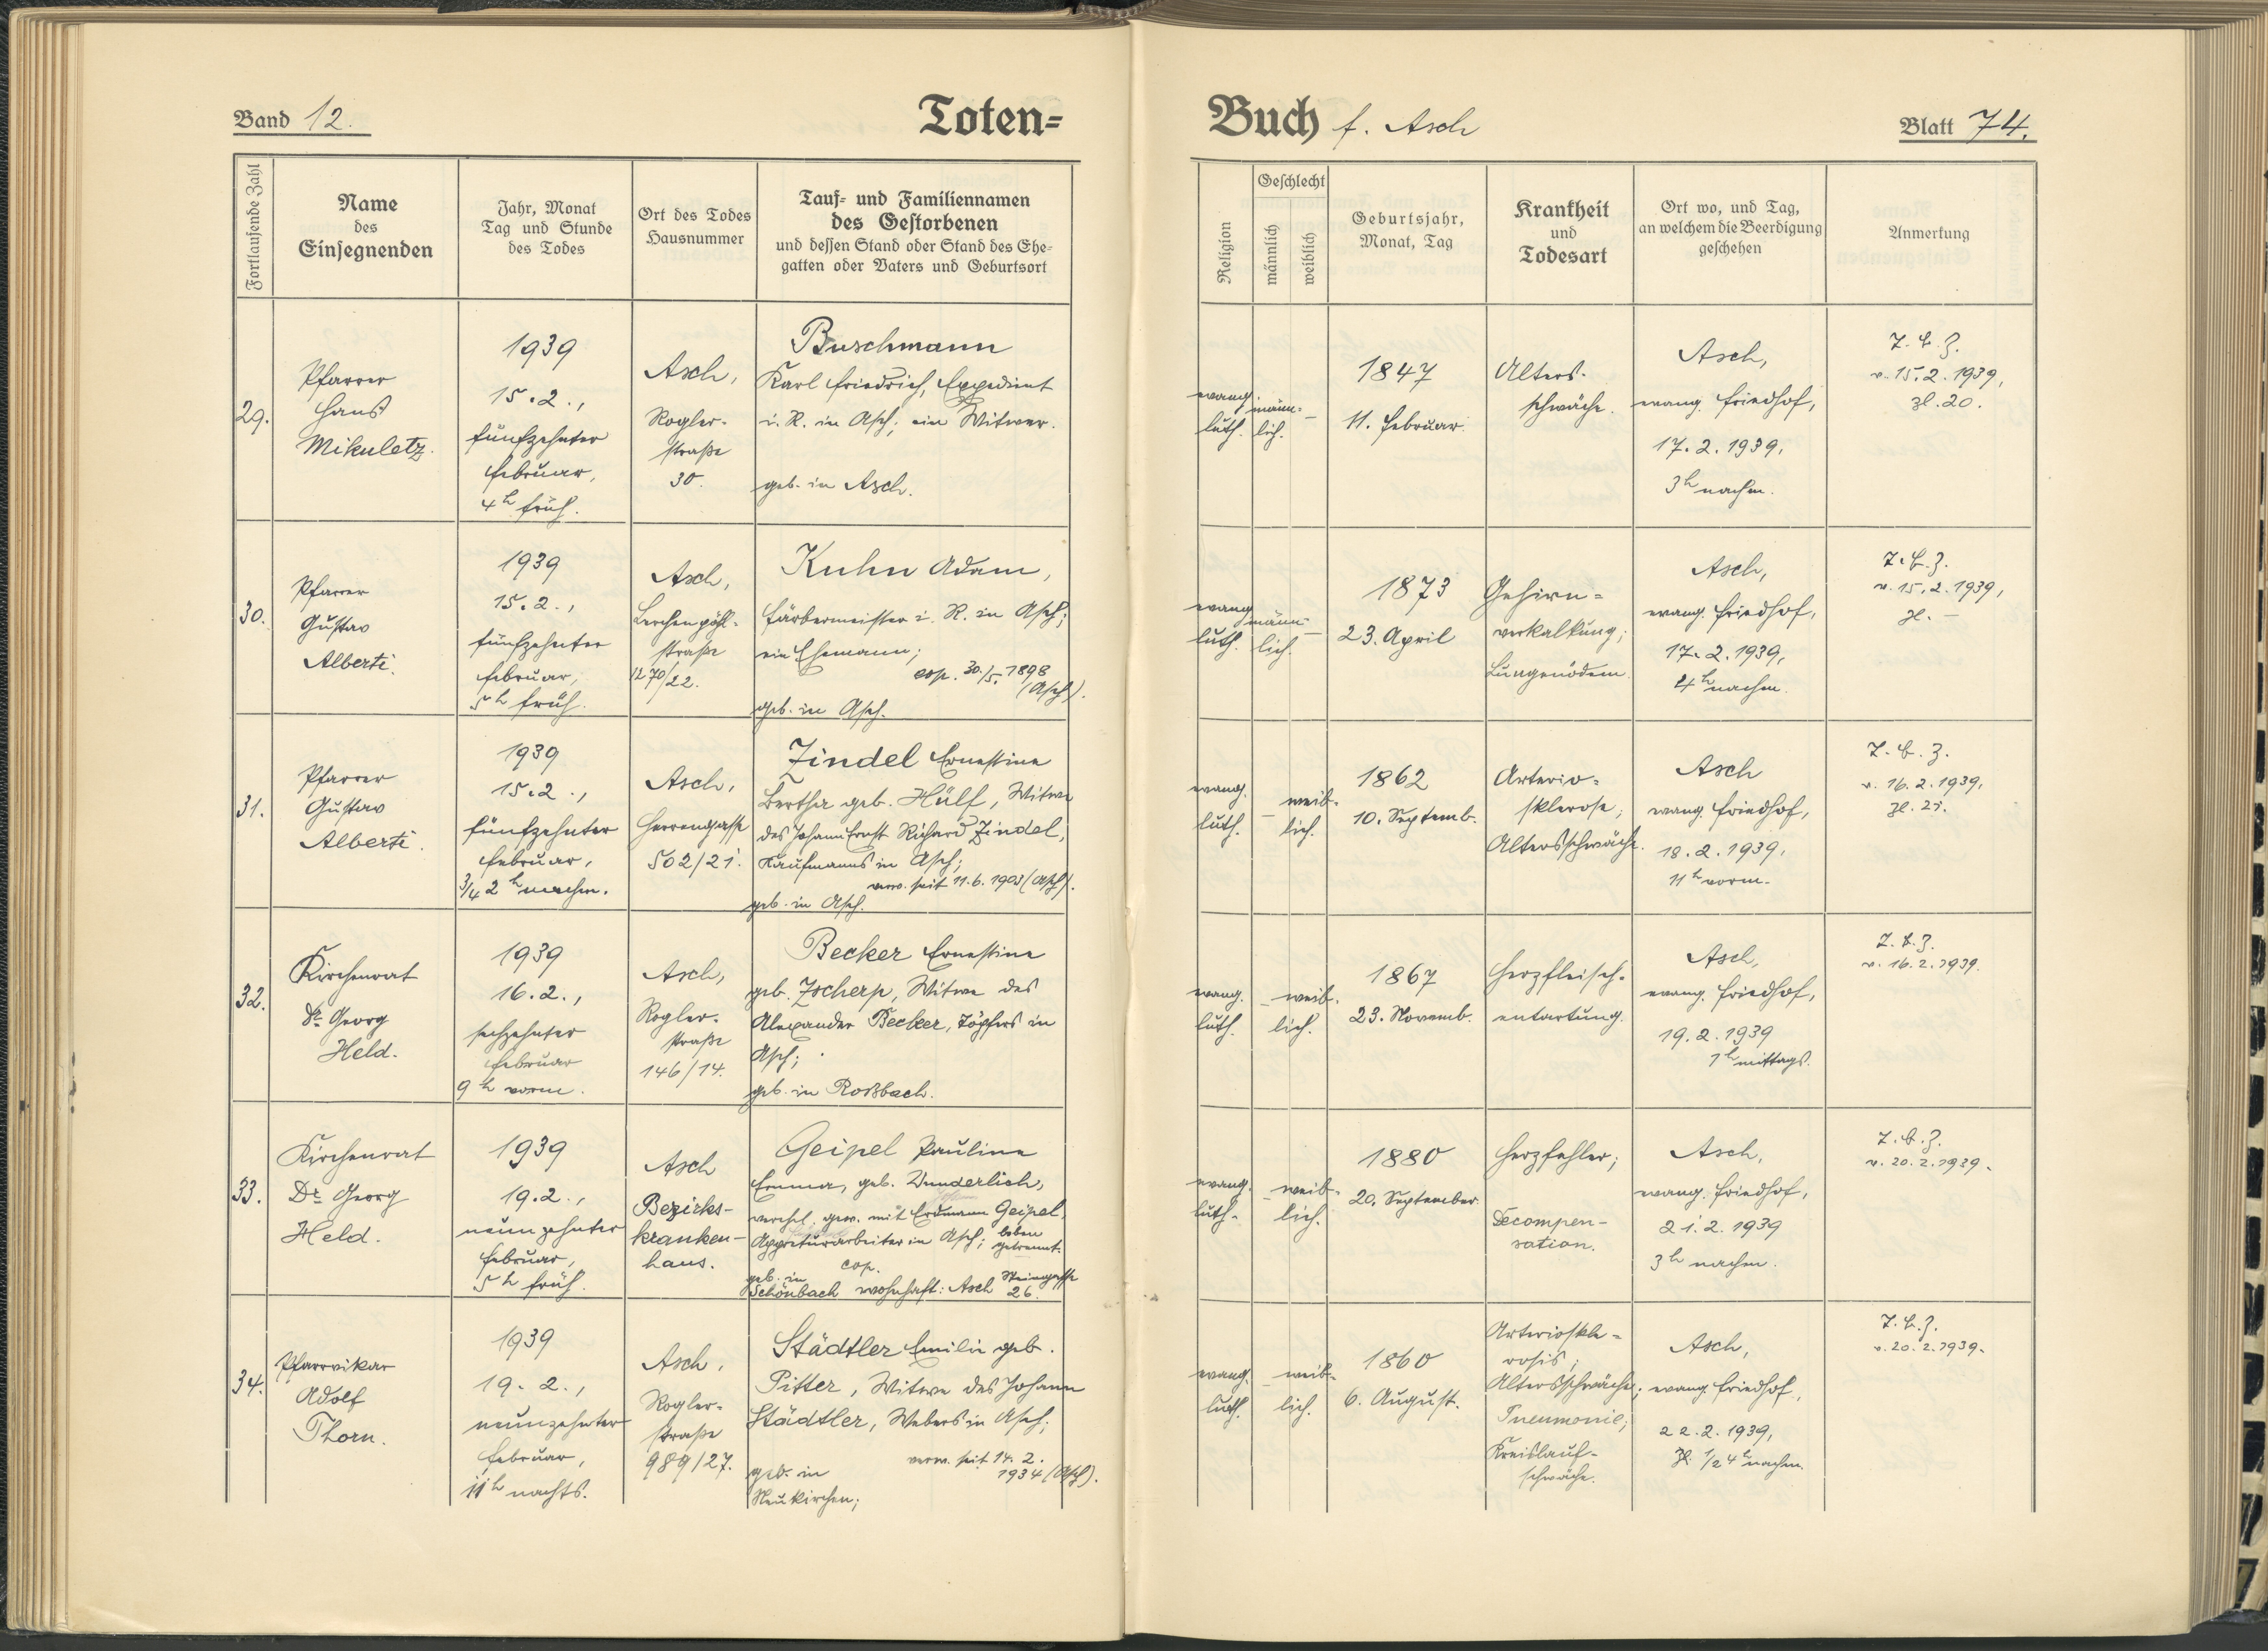 Band 12.
Toten=
Fortlaufende Zahl
Name
des
Einsegnenden
Jahr, Monat
Tag und Stunde
des Todes
Ort des Todes
Hausnummer
Tauf= und Familiennamen
des Gestorbenen
und dessen Stand oder Stand des Ehe-
gatten oder Vaters und Geburtsort
29.
Pfarrer
Hans
Mikuletz.
1939
15.2.,
fünfzehnter
Februar,
4h früh.
Asch,
Rogler-
straße
30.
Buschmann
Karl Friedrich, Expedient
i. R. in Asch; ein Witwer.
geb. in Asch.
30.
Pfarrer
Gustav
Alberti.
1939
15.2.,
fünfzehnter
Februar,
5h früh.
Asch,
Lerchenpöhl-
straße
1270/22.
Kuhn Adam,
Färbermeister i. R. in Asch;
ein Ehemann;
cop. 30./5. 1898
(Asch).
geb. in Asch.
31.
Pfarrer
Gustav
Alberti.
1939
15.2.,
fünfzehnter
Februar,
3/4 2h nachm.
Asch,
Herrengasse
502/21.
Zindel Ernestine
Bertha geb. Hülf, Witwe
des Johann Ernst Richard Zindel,
Kaufmanns in Asch;
verw. seit 11.6.1903 (Asch).
geb. in Asch.
32.
Kirchenrat
Dr. Georg
Held.
1939
16.2.,
sechzehnter
Februar
9h vorm.
Asch,
Rogler-
straße
146/14.
Becker Ernestine
geb. Zscherp, Witwe des
Alexander Becker, Töpfers in
Asch;
geb. in Roßbach.
33.
Kirchenrat
Dr. Georg
Held.
1939
19.2.,
neunzehnter
Februar,
5h früh.
Asch
Bezirks-
kranken-
haus.
Geipel Pauline
Emma, geb. Wunderlich,
verehel. gew. mit Erdmann Geipel,
Appreturarbeiter in Asch; leben
getrennt.
geb. in cop.
Schönbach wohnhaft: Asch Steingasse
26.
34.
Pfarrvikar
Adolf
Thorn.
1939
19.2.,
neunzehnter
Februar,
11h nachts.
Asch,
Rogler-
straße
989/27.
Städtler Emilie geb.
Pitter, Witwe des Johann
Städtler, Webers in Asch;
verw. seit 14.2.
1934 (Asch).
geb. in
Neukirchen;
Buch f. Asch
Blatt 74.
Religion
Geschlecht
männlich
weiblich
Geburtsjahr,
Monat, Tag
Krankheit
und
Todesart
Ort wo, und Tag,
an welchem die Beerdigung
geschehen
Anmerkung
evang.
luth.
männ-
lich.
–
1847
11. Februar.
Alters-
schwäche.
Asch,
evang. Friedhof,
17.2.1939,
3h nachm.
T.B.Z.
v. 15.2.1939,
Zl. 20.
evang.
luth.
männ-
lich.
–
1873
23. April
Gehirn=
verkalkung;
Lungenödem.
Asch,
evang. Friedhof,
17.2.1939,
4h nachm.
T.B.Z.
v. 15.2.1939,
Zl. –
evang.
luth.
–
weib-
lich.
1862
10. Septemb.
Arterio=
sklerose;
Altersschwäche.
Asch
evang. Friedhof,
18.2.1939,
11h vorm.
T.B.Z.
v. 16.2.1939,
Zl. 21.
evang.
luth.
–
weib-
lich.
1867
23. Novemb.
Herzfleisch-
entartung.
Asch,
evang. Friedhof,
19.2.1939
1h mittags.
T.B.Z.
v. 16.2.1939.
evang.
luth.
–
weib-
lich.
1880
20. September
Herzfehler;
Decompen-
sation.
Asch,
evang. Friedhof,
21.2.1939
3h nachm.
T.B.Z.
v. 20.2.1939.
evang.
luth.
–
weib-
lich.
1860
6. August.
Arterioskle=
rosis;
Altersschwäche;
Pneumonie;
Kreislauf-
schwäche.
Asch,
evang. Friedhof,
22.2.1939,
1/2 4h nachm.
T.B.Z.
v. 20.2.1939.